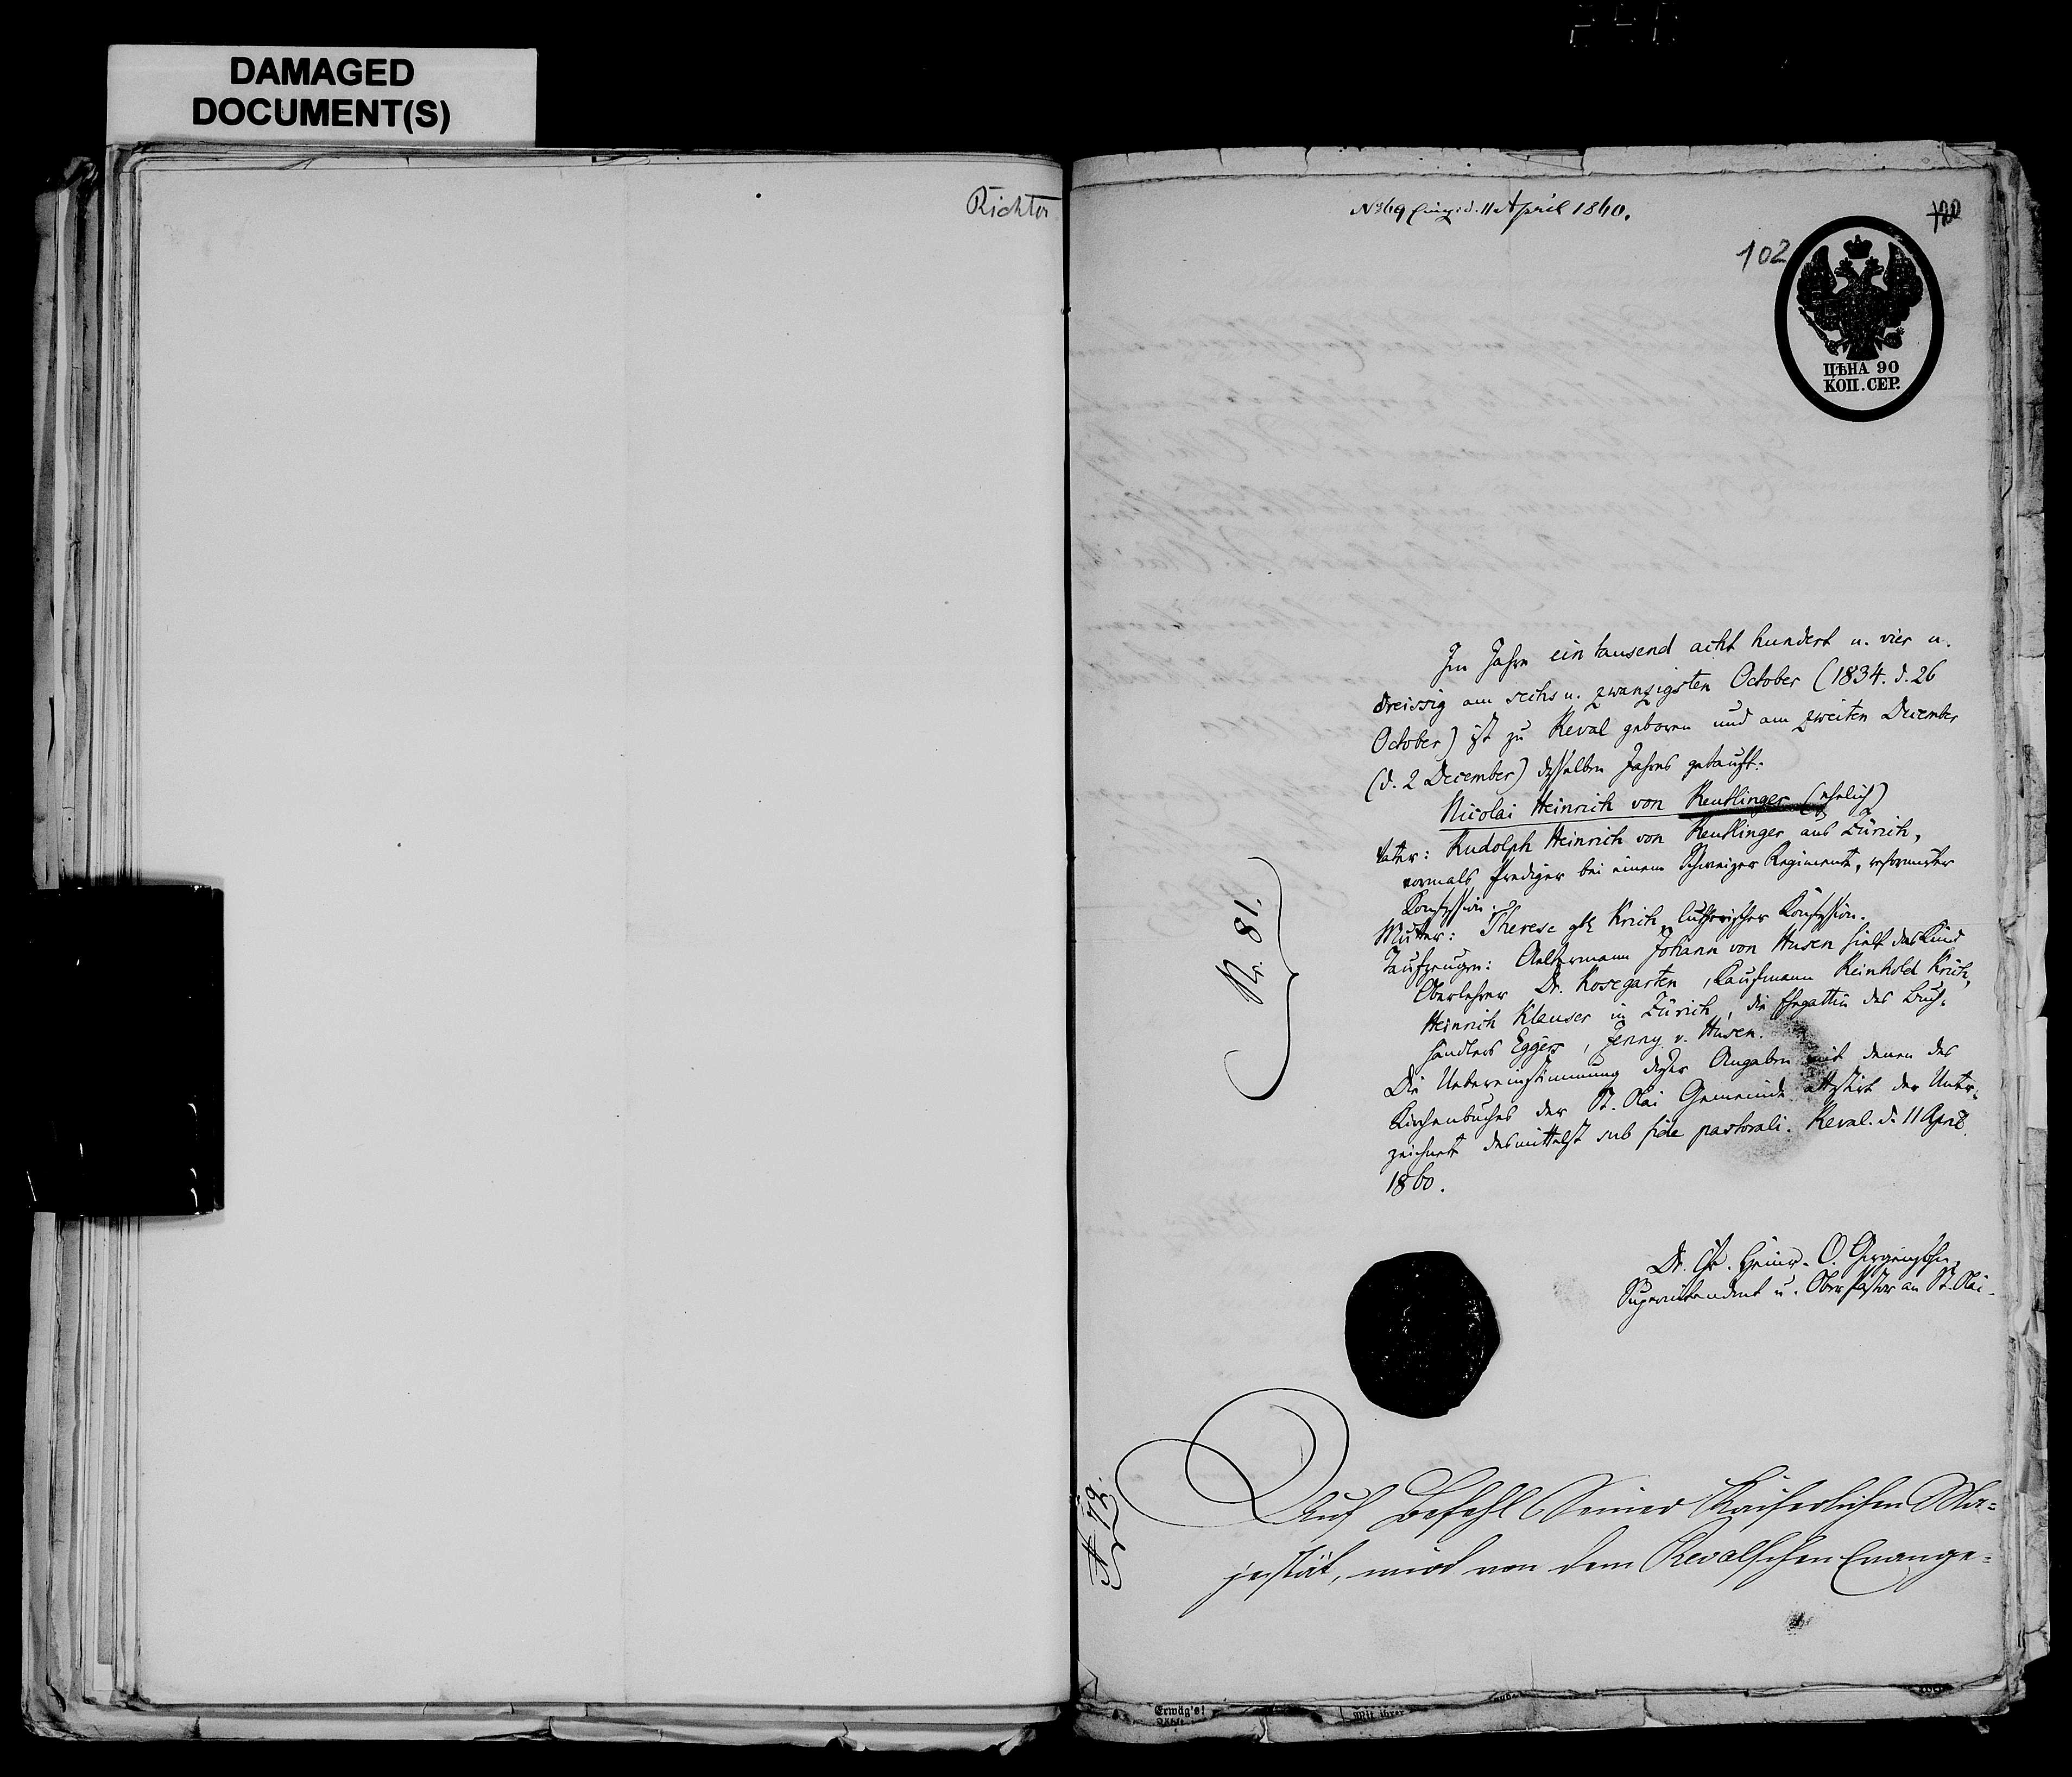 DAMAGED
DOCUMENT(S)
Richter
№ 69 11 April 1860.
120
102
ЦѢНА 90
КОП. СЕР.
Im Jahre ein tausend acht hundert u. vier u.
dreissig am sechs u. zwanzigsten October (1834. d. 26
October) ist zu Reval geboren und am zweiten December
(d. 2 December) desselben Jahres getauft:
Nicolai Heinrich von Reutlinger (ehelich)
Vater: Rudolph Heinrich von Reutlinger aus Zürich,
vormals Prediger bei einem Schweizer Regiment, reformirter
Konfession.
Mutter: Therese geb. Krich, lutherischer Konfession.
Taufzeugen: Aeltermann Johann von Husen hielt das Kind
Oberlehrer Dr. Rosegarten, Kaufmann Reinhold Krich,
Heinrich Klauser in Zürich, die Ehegattin des Buch-
händlers Eggers, Jenny v. Husen.
Die Uebereinstimmung dieser Angaben mit denen des
Kirchenbuches der St. Olai Gemeinde attestirt der Unter-
zeichnete desmittelst sub fide pastorali. Reval. d. 11 April
1860.
Nr. 81.
Dr. Chr. Heinr. O. Girgensohn,
Superintendent u. Ober Pastor an St. Olai.
№ 79.
Auf Befehl Seiner Kaiserlichen Ma-
jestät, wird von dem Revalschen Evange-
Erwäg's!
Mit ihrer